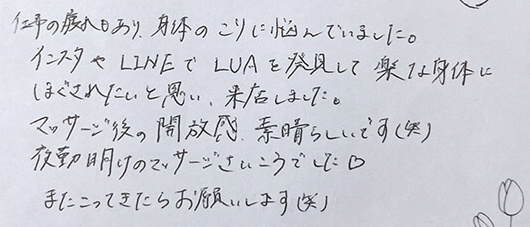 仕事の疲れもあり、身体のこりに悩んでいました。
インスタやLINEでLUAを発見して楽な身体に
ほぐされたいと思い、来店しました。
マッサージ後の開放感、素晴らしいです(笑)
夜勤明けのマッサージさいこうでした♡
またこってきたらお願いします(笑)